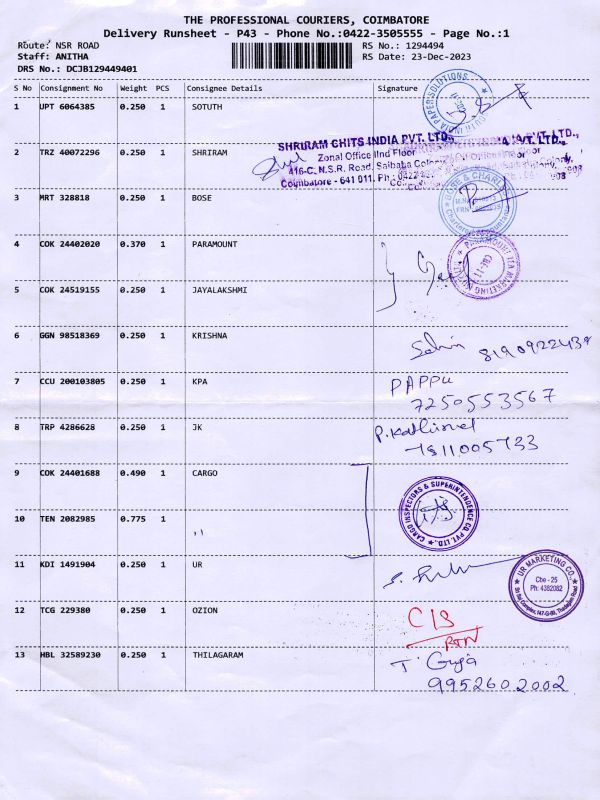 THE PROFESSIONAL COURIERS, COIMBATORE
Delivery Runsheet - P43 - Phone No.:0422-3505555 - Page No.:1
Route: NSR ROAD RS No.: 1294494
Staff: ANITHA RS Date: 23-Dec-2023
DRS No.: DCJB129449401
S No Consignment No Weight PCS Consignee Details Signature
1 UPT 6064385 0.250 1 SOTUTH
SHRIRAM CHITS INDIA PVT. LTD.,
2 TRZ 40072296 0.250 1 SHRIRAM Zonal Office IInd Floor
416-C, N.S.R. Road, Saibaba Colony,
Coimbatore - 641 011. Ph : 0422
3 MRT 328818 0.250 1 BOSE
4 COK 24402020 0.370 1 PARAMOUNT
5 COK 24519155 0.250 1 JAYALAKSHMI
6 GGN 98518369 0.250 1 KRISHNA
7 CCU 200103805 0.250 1 KPA PAPPU
7250553567
8 TRP 4286628 0.250 1 JK
7811005733
9 COK 24401688 0.490 1 CARGO
CARGO INSPECTORS & SUPERINTENDENCE CO. PVT. LTD.
10 TEN 2082985 0.775 1 ,,
11 KDI 1491904 0.250 1 UR
UR MARKETING CO.,
Cbe - 25
Ph: 4382082
12 TCG 229380 0.250 1 OZION C/S
RTN
13 HBL 32589230 0.250 1 THILAGARAM
9952602002